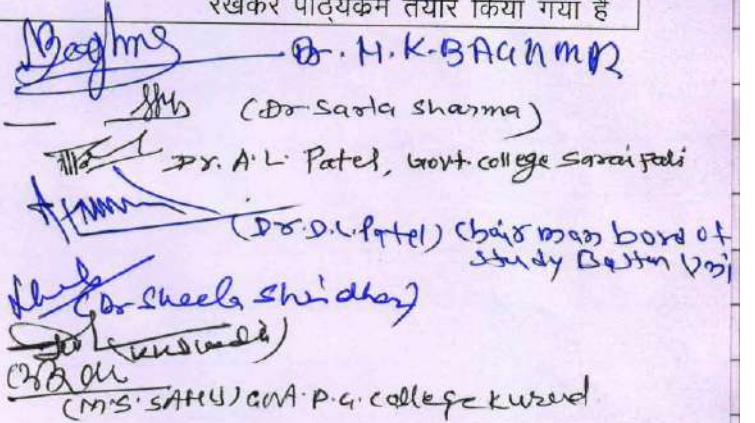 रखकर पाठ्यक्रम तैयार किया गया है
Dr. H.K. BAGHMAR
(Dr Sarla Sharma)
Dr. A.L. Patel, Govt. college Saraipali
(Dr. D.L. Patel) Chairman bord of
study Bastar Uni
(Dr Sheela Shridhar)
(M.S. SAHU) Govt. P.G. college Kurud